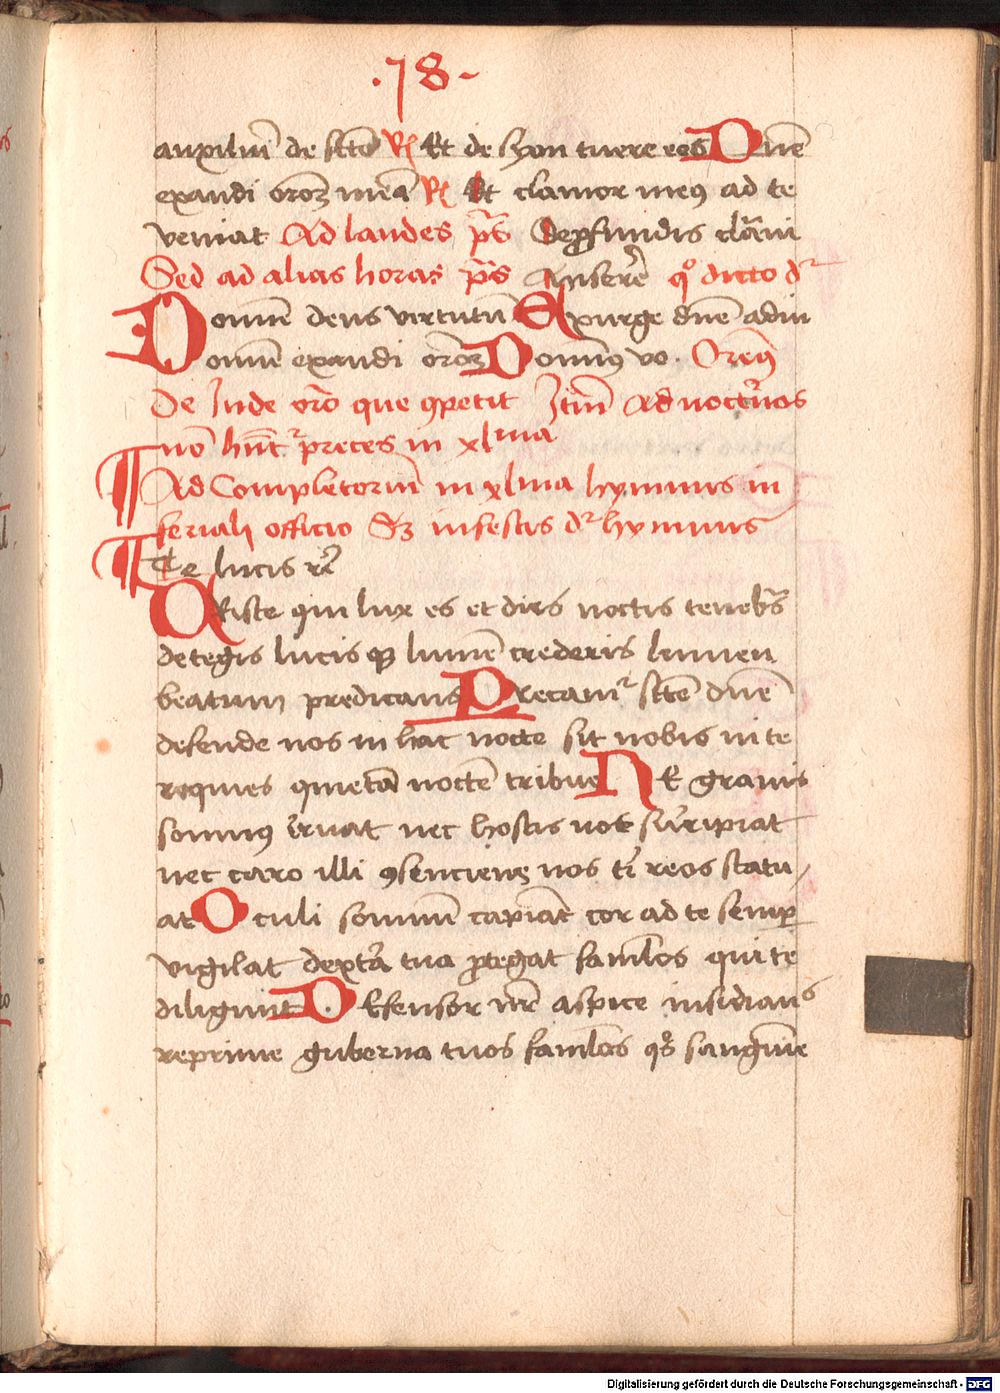 .78.
auxiliū de sctō R/ Et de syon tuere eos Dnē
exaudi oroēz meā R/ Et clamor meus ad te
veniat Ad laudes ps̄ De profundis clāvi
Sed ad alias horas ps̄ Miserēre quo dicto dr
Domine deus virtutū Exurge dnē adiu
Domine exaudi oroēz Dominus vo. Oremus
De Inde orō que competit Itm̄ Ad nocturnos
nō hn̄tur preces in xlma
Ad Completorium in xlma hymnus in
feriali officio Sz in festis dr hymnus
Te lucis etc
Criste qui lux es et dies noctis tenebras
detegis lucis que lumen crederis lumen
beatum predicans Precamur sctē dnē
defende nos in hac nocte sit nobis in te
requies quietā noctē tribue Ne gravis
somnus irruat nec hostis nos surripiat
nec caro illi consenciens nos tibi reos statu
at Oculi somnum capiant cor ad te semper
vigilat dextera tua protegat famulos qui te
diligunt Defensor nr̄ aspice insidians
reprime guberna tuos famulos quos sanguine
Digitalisierung gefördert durch die Deutsche Forschungsgemeinschaft - DFG